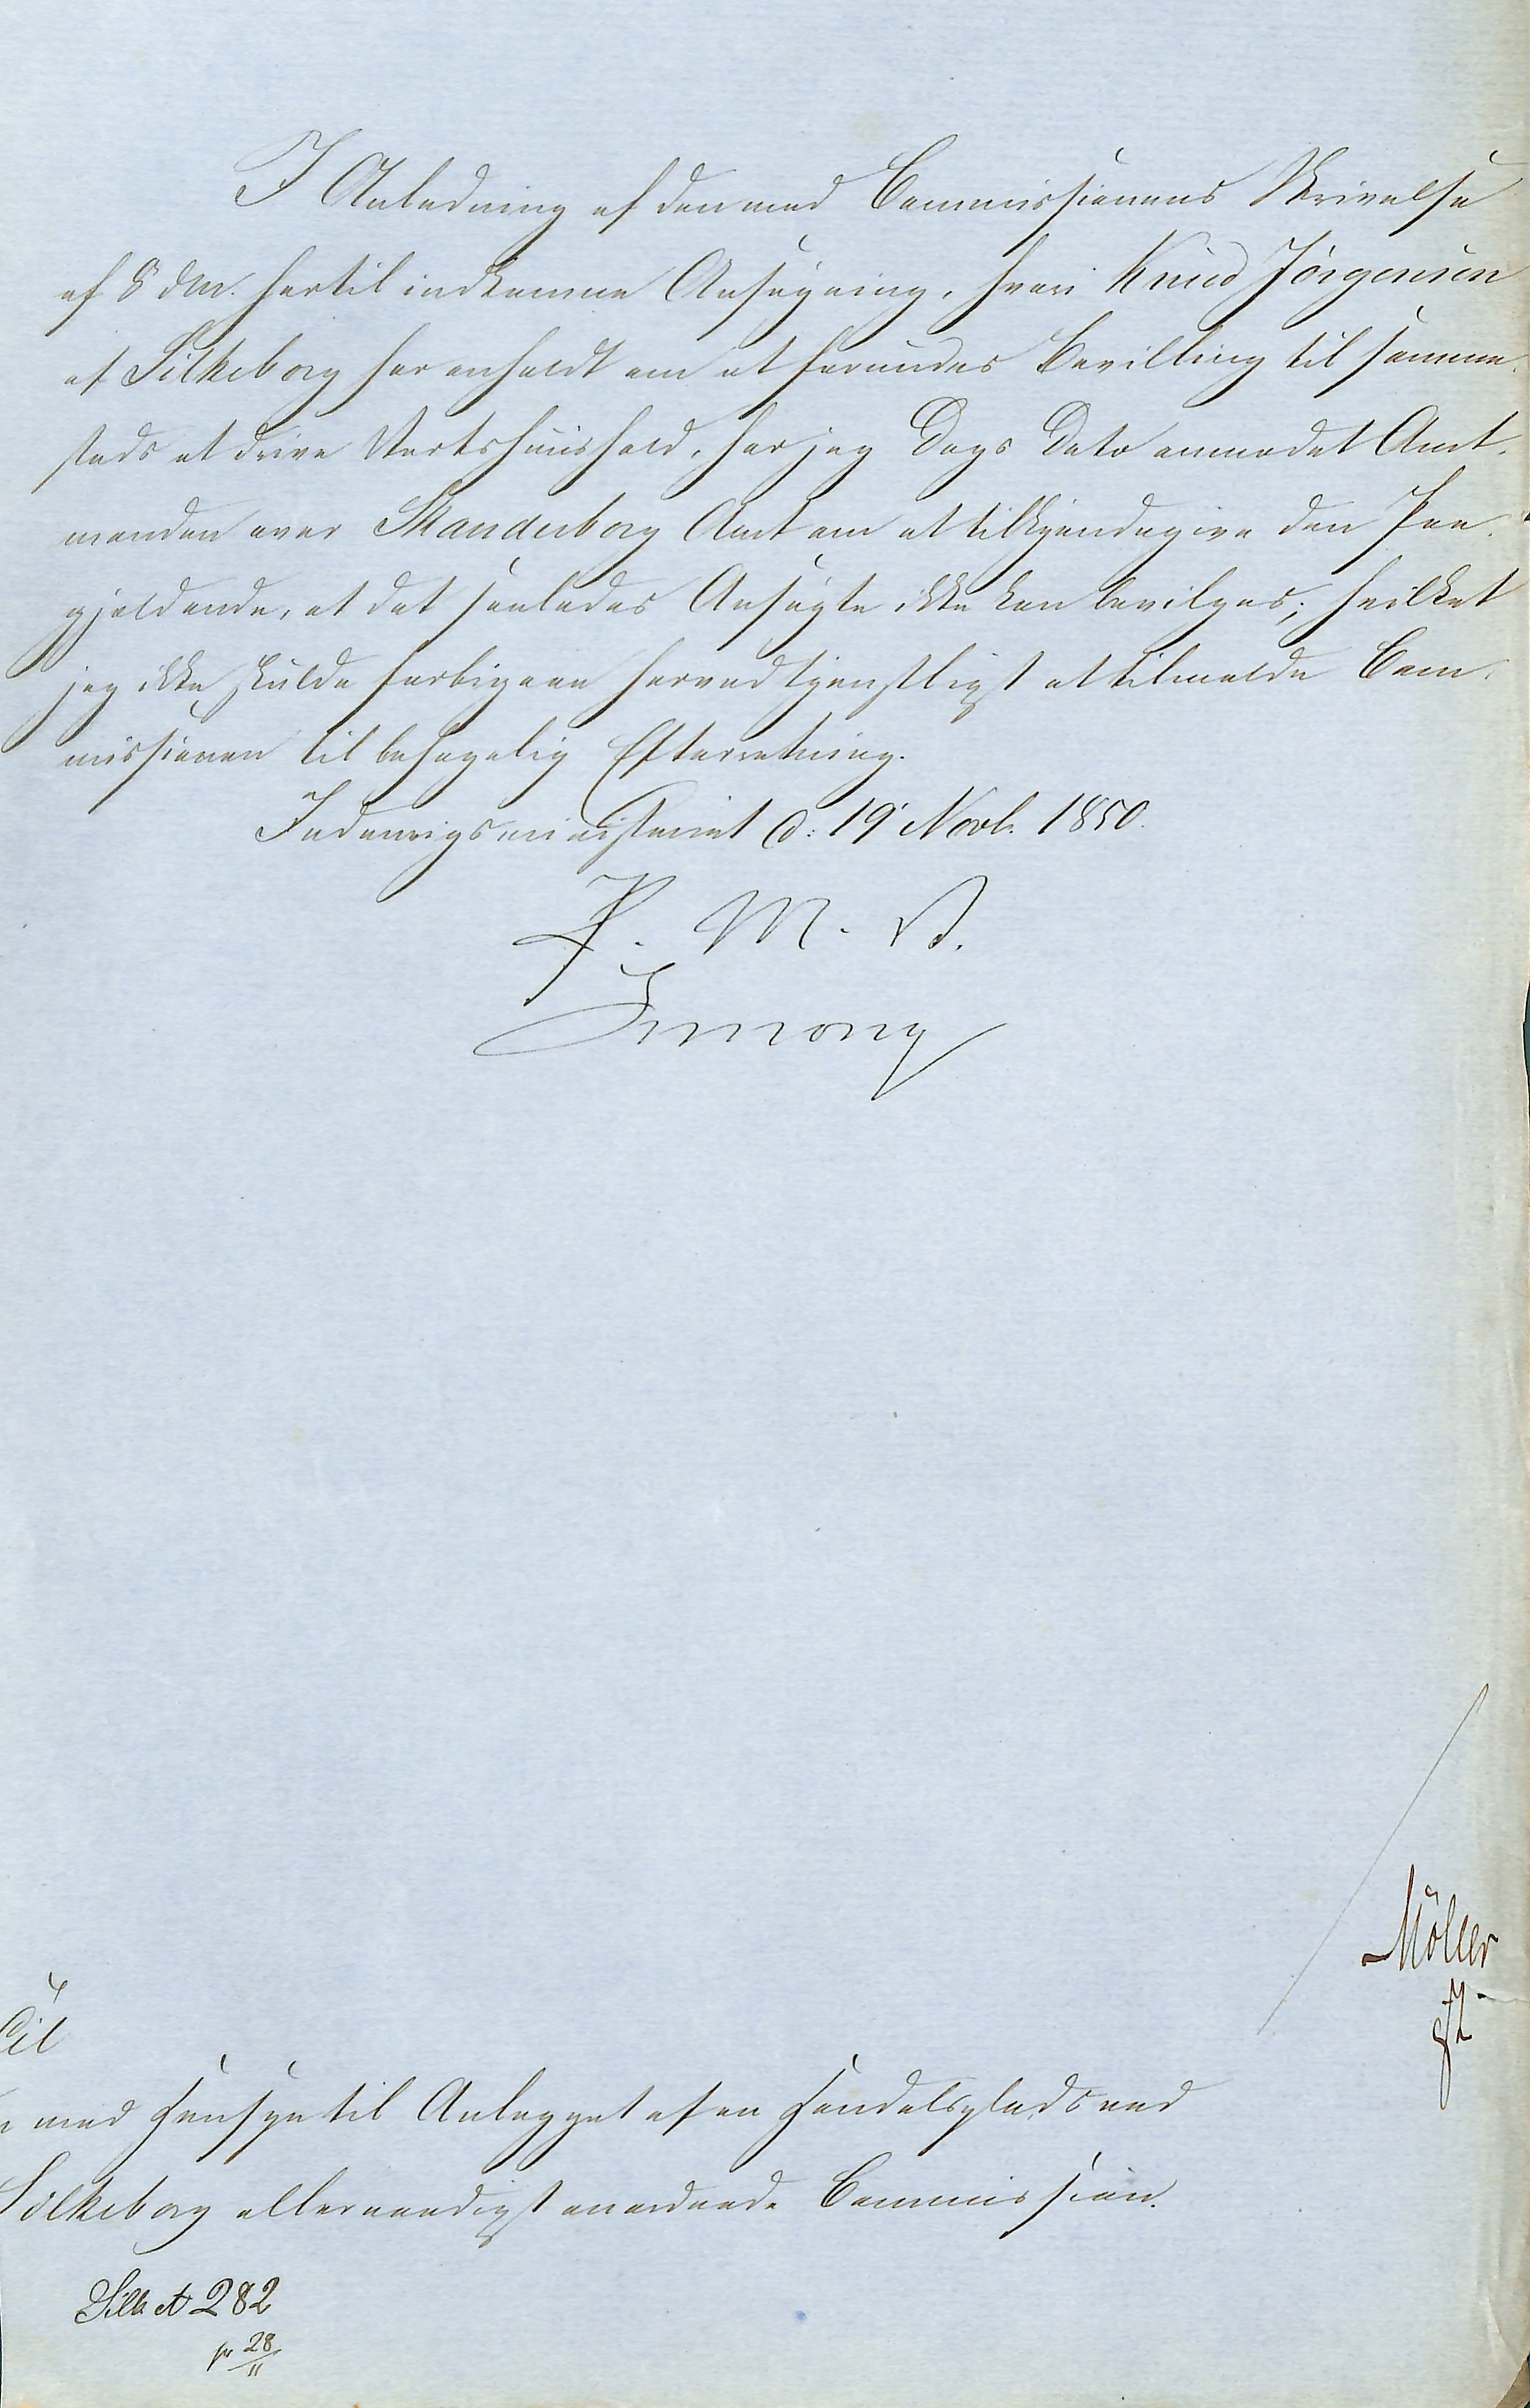 I Anledning af den med Commissionens Skrivelse
af 8 dM. hertil indkomne Ansøgning, hvori Knud Jörgensen
af Silkeborg har anholdt om at forundes Bevilling til samme-
steds at drive Værtshuushold, har jeg Dags Dato anmodet Amt-
manden over Skanderborg Amt om at tilkjendegive den Paa-
gjældende, at det saaledes Ansøgte ikke kan bevilges; hvilket
jeg ikke skulde forbigaae herved tjenstligst at tilmelde Com-
missionen til behagelig Efterretning.
Indenrigsministeriet d: 19 Novb. 1850.
P. M. V.
Møller
Til
n med Hensyn til Anlægget af en Handelsplads ved
Silkeborg allernaadigst anordnede Commission.
Silk A 282
pr 28/11